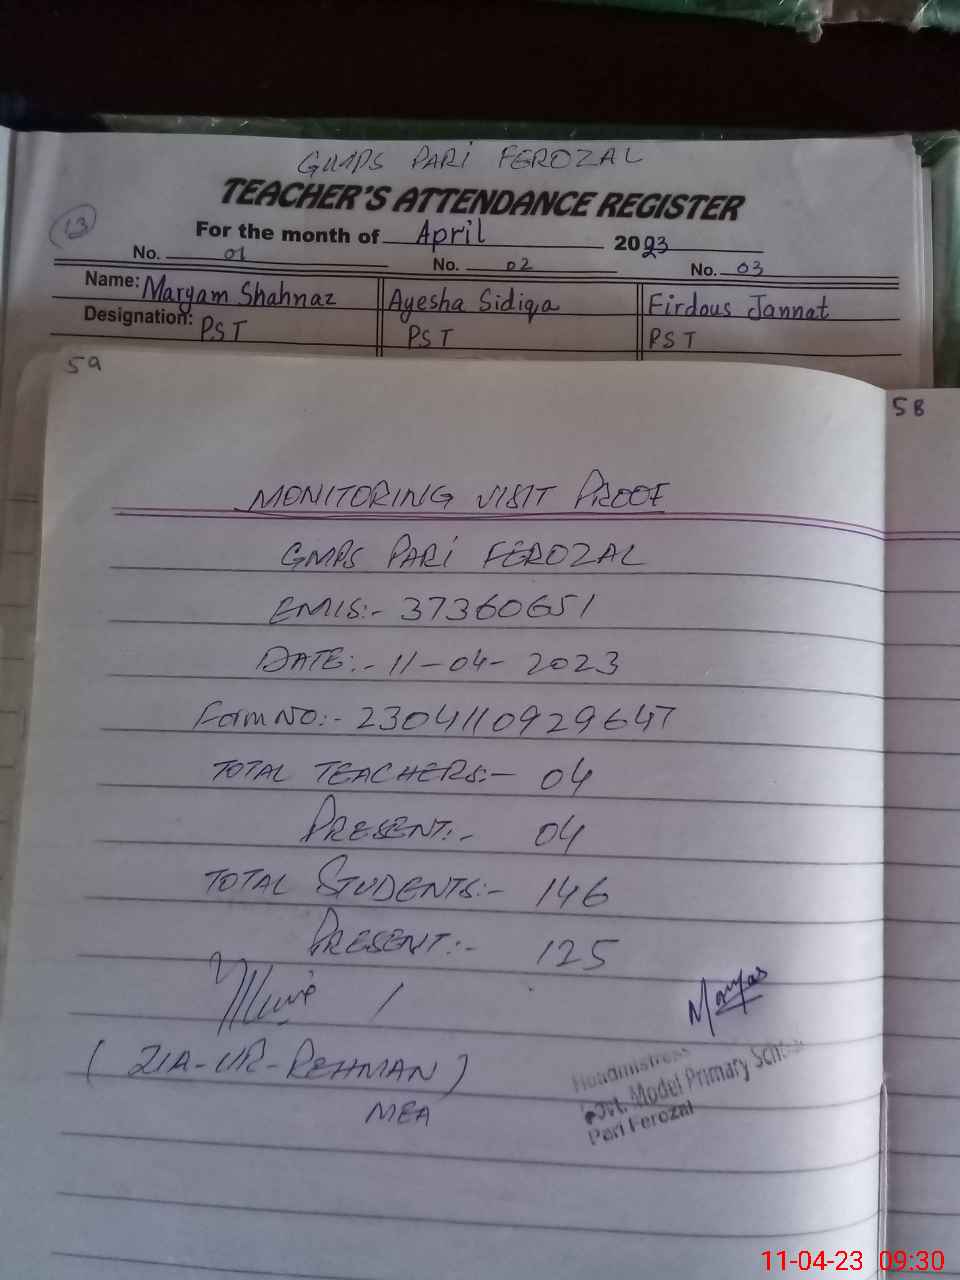 GMPS PARI FEROZAL
TEACHER'S ATTENDANCE REGISTER
13
For the month of April 2023
No. 01 No. 02 No. 03
Name: Maryam Shahnaz Ayesha Sidiqa Firdous Jannat
Designation: PST PST PST
59
58
MONITORING VISIT PROOF
GMPS PARI FEROZAL
EMIS:- 37360651
DATE:- 11-04-2023
Form NO:- 2304110929647
TOTAL TEACHERS:- 04
PRESENT:- 04
TOTAL STUDENTS:- 146
PRESENT:- 125
(ZIA-UR-REHMAN)
MEA
Headmistress
Govt. Model Primary School
Pari Ferozal
11-04-23 09:30